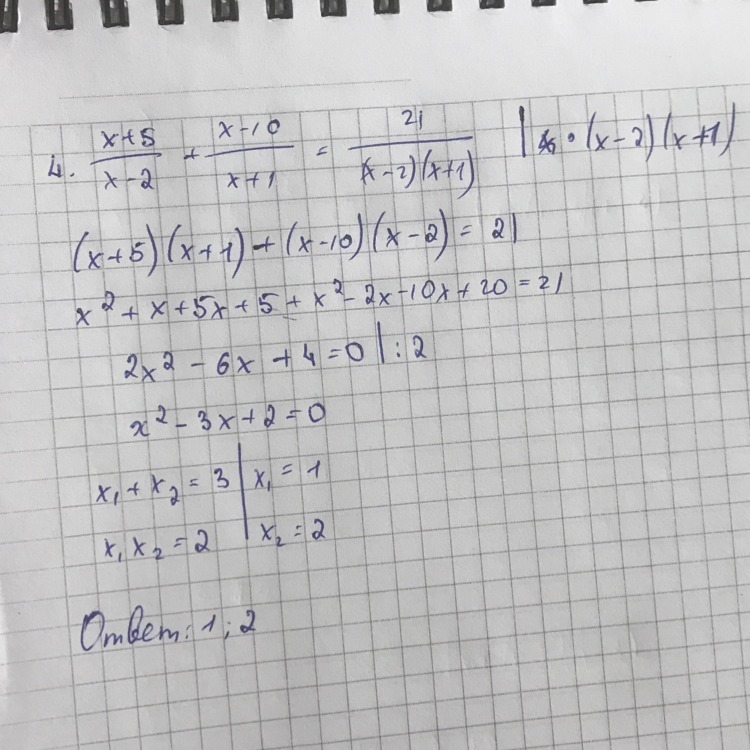 4. (x+5)/(x-2) + (x-10)/(x+1) = 21/((x-2)(x+1)) | · (x-2)(x+1)
(x+5)(x+1) + (x-10)(x-2) = 21
x² + x + 5x + 5 + x² - 2x - 10x + 20 = 21
2x² - 6x + 4 = 0 | : 2
x² - 3x + 2 = 0
x₁ + x₂ = 3 | x₁ = 1
x₁x₂ = 2 | x₂ = 2
Ответ: 1; 2